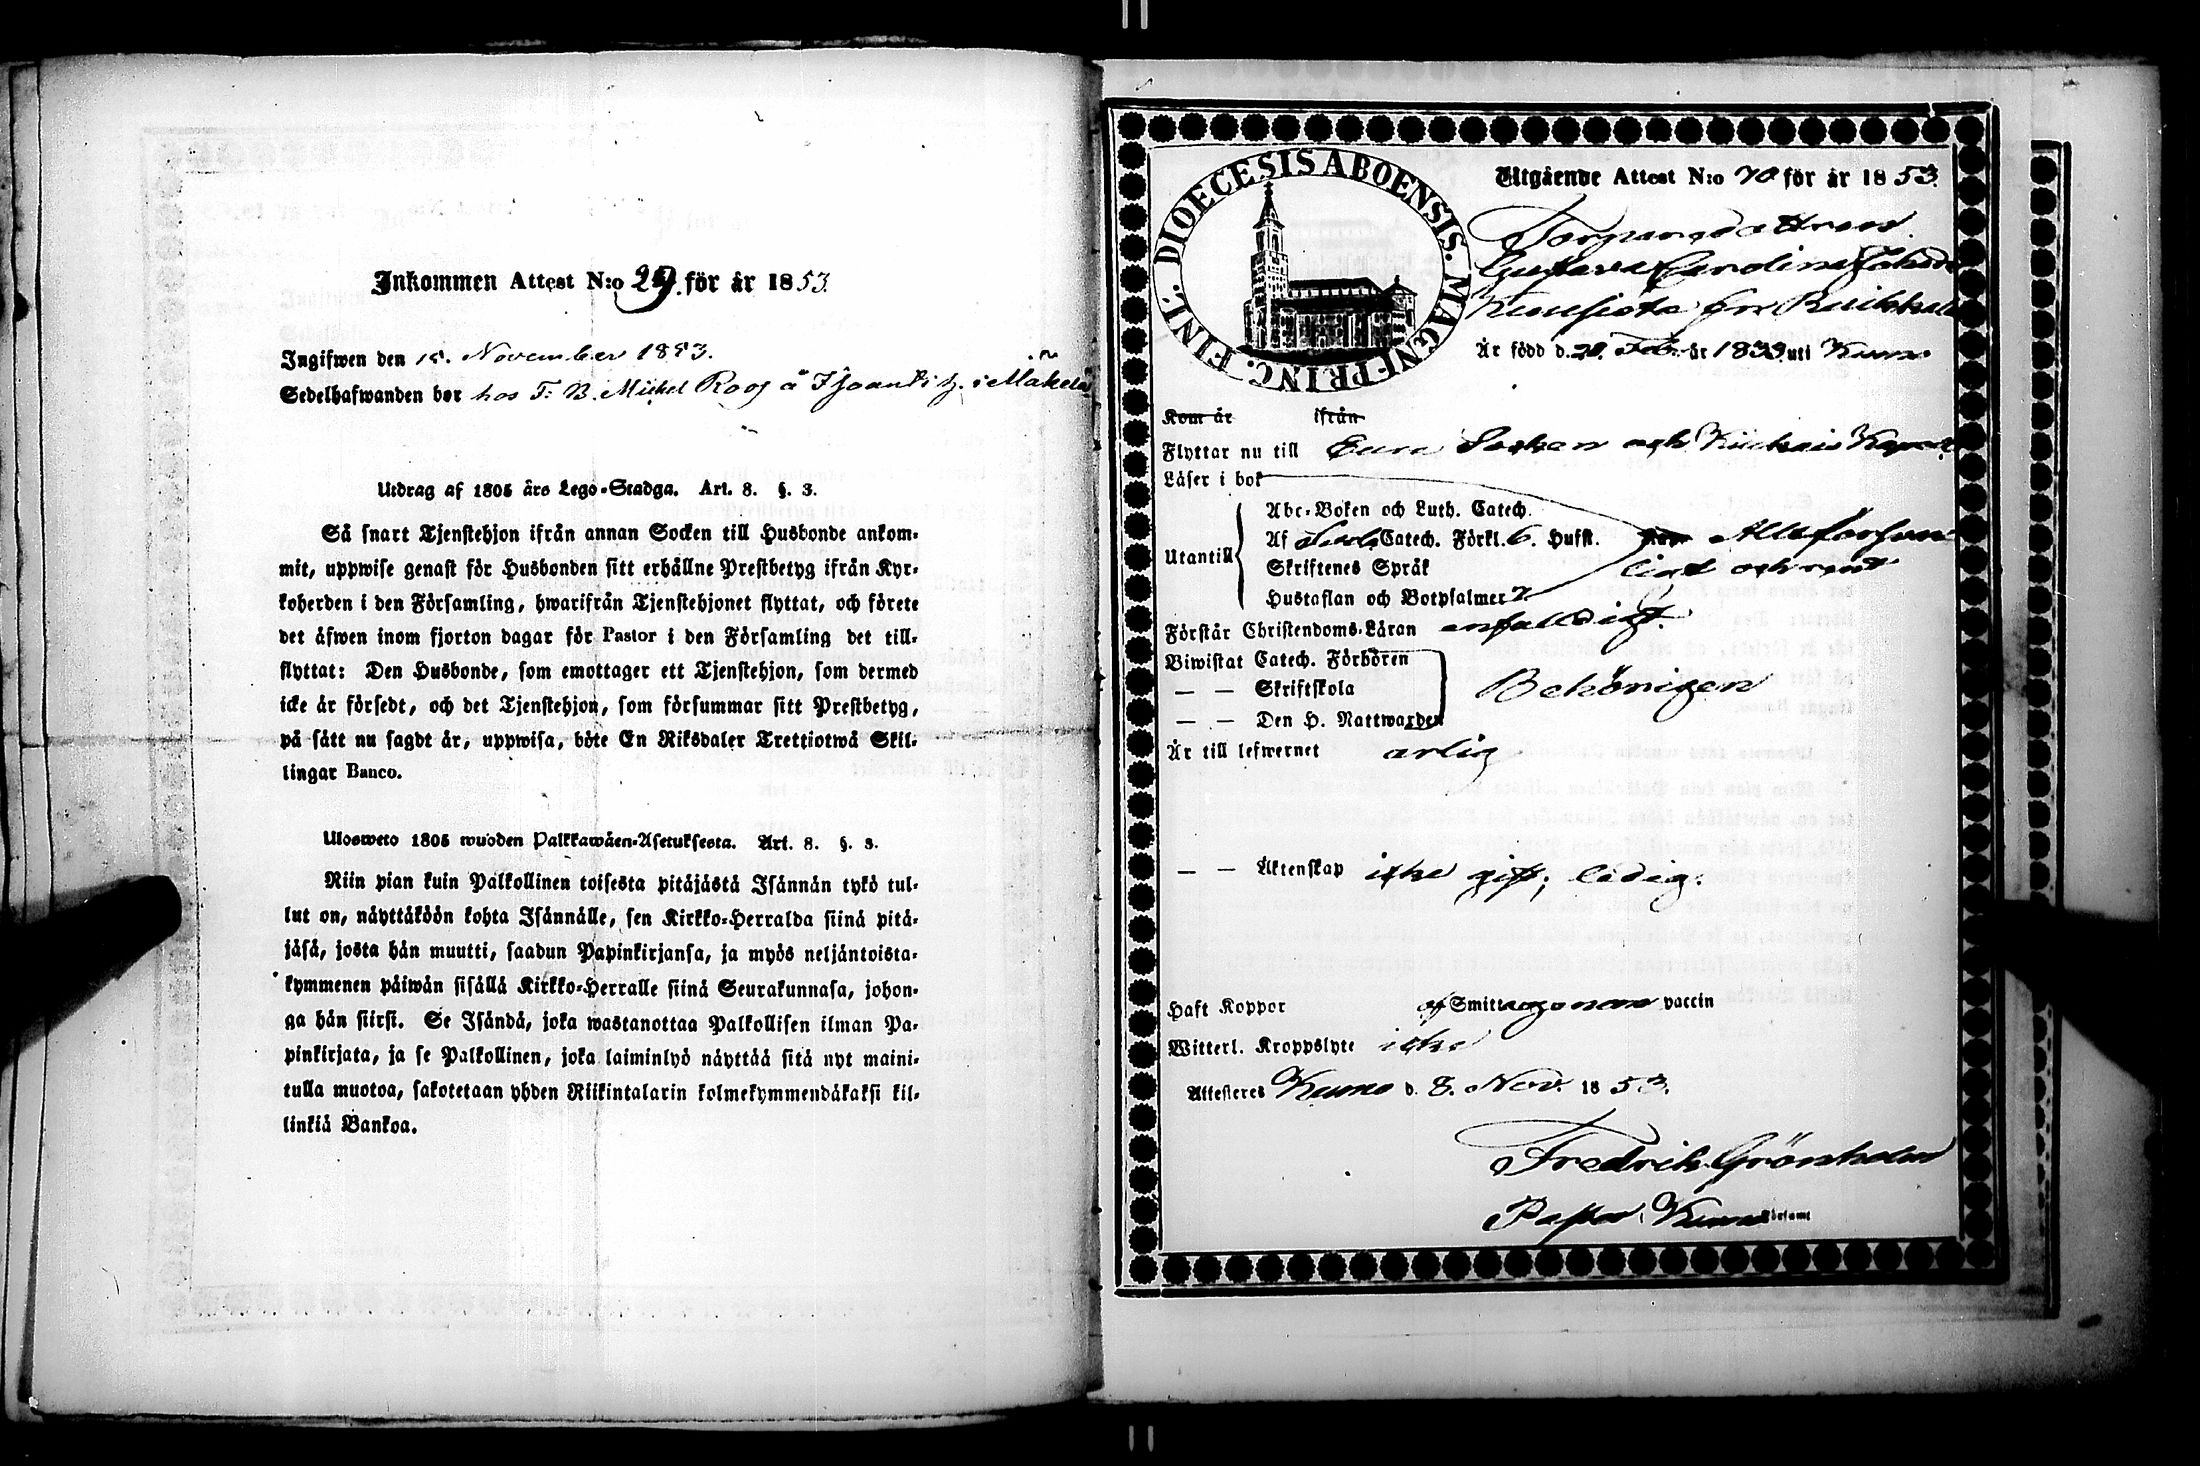 Inkommen Attest N:o 29. för år 1853.
Ingifwen den 15. November 1853.
Sedelhafwanden bor hos T. B. Michel Roos å
Utdrag af 1805 års Lego-Stadga. Art. 8. §. 3.
Så snart Tjenstehjon ifrån annan Socken till Husbonde ankom-
mit, uppwise genast för Husbonden sitt erhållne Prestbetyg ifrån Kyr-
koherden i den Församling, hwarifrån Tjenstehjonet flyttat, och förete
det äfwen inom fjorton dagar för Pastor i den Församling det till-
flyttat: Den Husbonde, som emottager ett Tjenstehjon, som dermed
icke är försedt, och det Tjenstehjon, som försummar sitt Prestbetyg,
på sätt nu sagdt är, uppwisa, böte En Riksdaler Trettiotwå Skil-
lingar Banco.
Ulosweto 1805 wuoden Palkkawäen-Asetuksesta. Art. 8. §. 3.
Niin pian kuin Palkollinen toisesta pitäjästä Isännän tykö tul-
lut on, näyttäköön kohta Isännälle, sen Kirkko-Herralda siinä pitä-
jäsä, josta hän muutti, saadun Papinkirjansa, ja myös neljäntoista-
kymmenen päiwän sisällä Kirkko-Herralle siinä Seurakunnasa, johon-
ga hän siirsi. Se Isändä, joka wastanottaa Palkollisen ilman Pa-
pinkirjata, ja se Palkollinen, joka laiminlyö näyttää sitä nyt maini-
tulla muotoa, sakotetaan yhden Riikintalarin kolmekymmendäkaksi kil-
linkiä Bankoa.
DIOECESIS ABOENSIS. MAGNI PRINC. FINL.
Utgående Attest N:o 70 för år 1853.
Torparedottren
Gustava Carolina
från
Är född d. 20. Feb. år 1833 uti Kumo
Kom år ifrån
Flyttar nu till Eura Socken och Kiukais Kapell
Läser i bok
Abc-Boken och Luth. Catech.
Utantill
Af Catech. Förkl. 6. Hufst.
Skriftenes Språk
Hustaflan och Botpsalmer 7.
Förstår Christendoms-Läran enfaldigt.
Biwistat Catech. Förhören
— — Skriftskola
— — Den H. Nattwarden
Behörigen
Är till lefwernet ärlig
— — Äktenskap icke gift, ledig.
Haft Koppor af Smitt vaccin
Witterl. Kroppslyte icke
Attesteres Kumo d. 8. Nov. 1853.
Fredrik Grönholm
Pastor i Kumo Församl